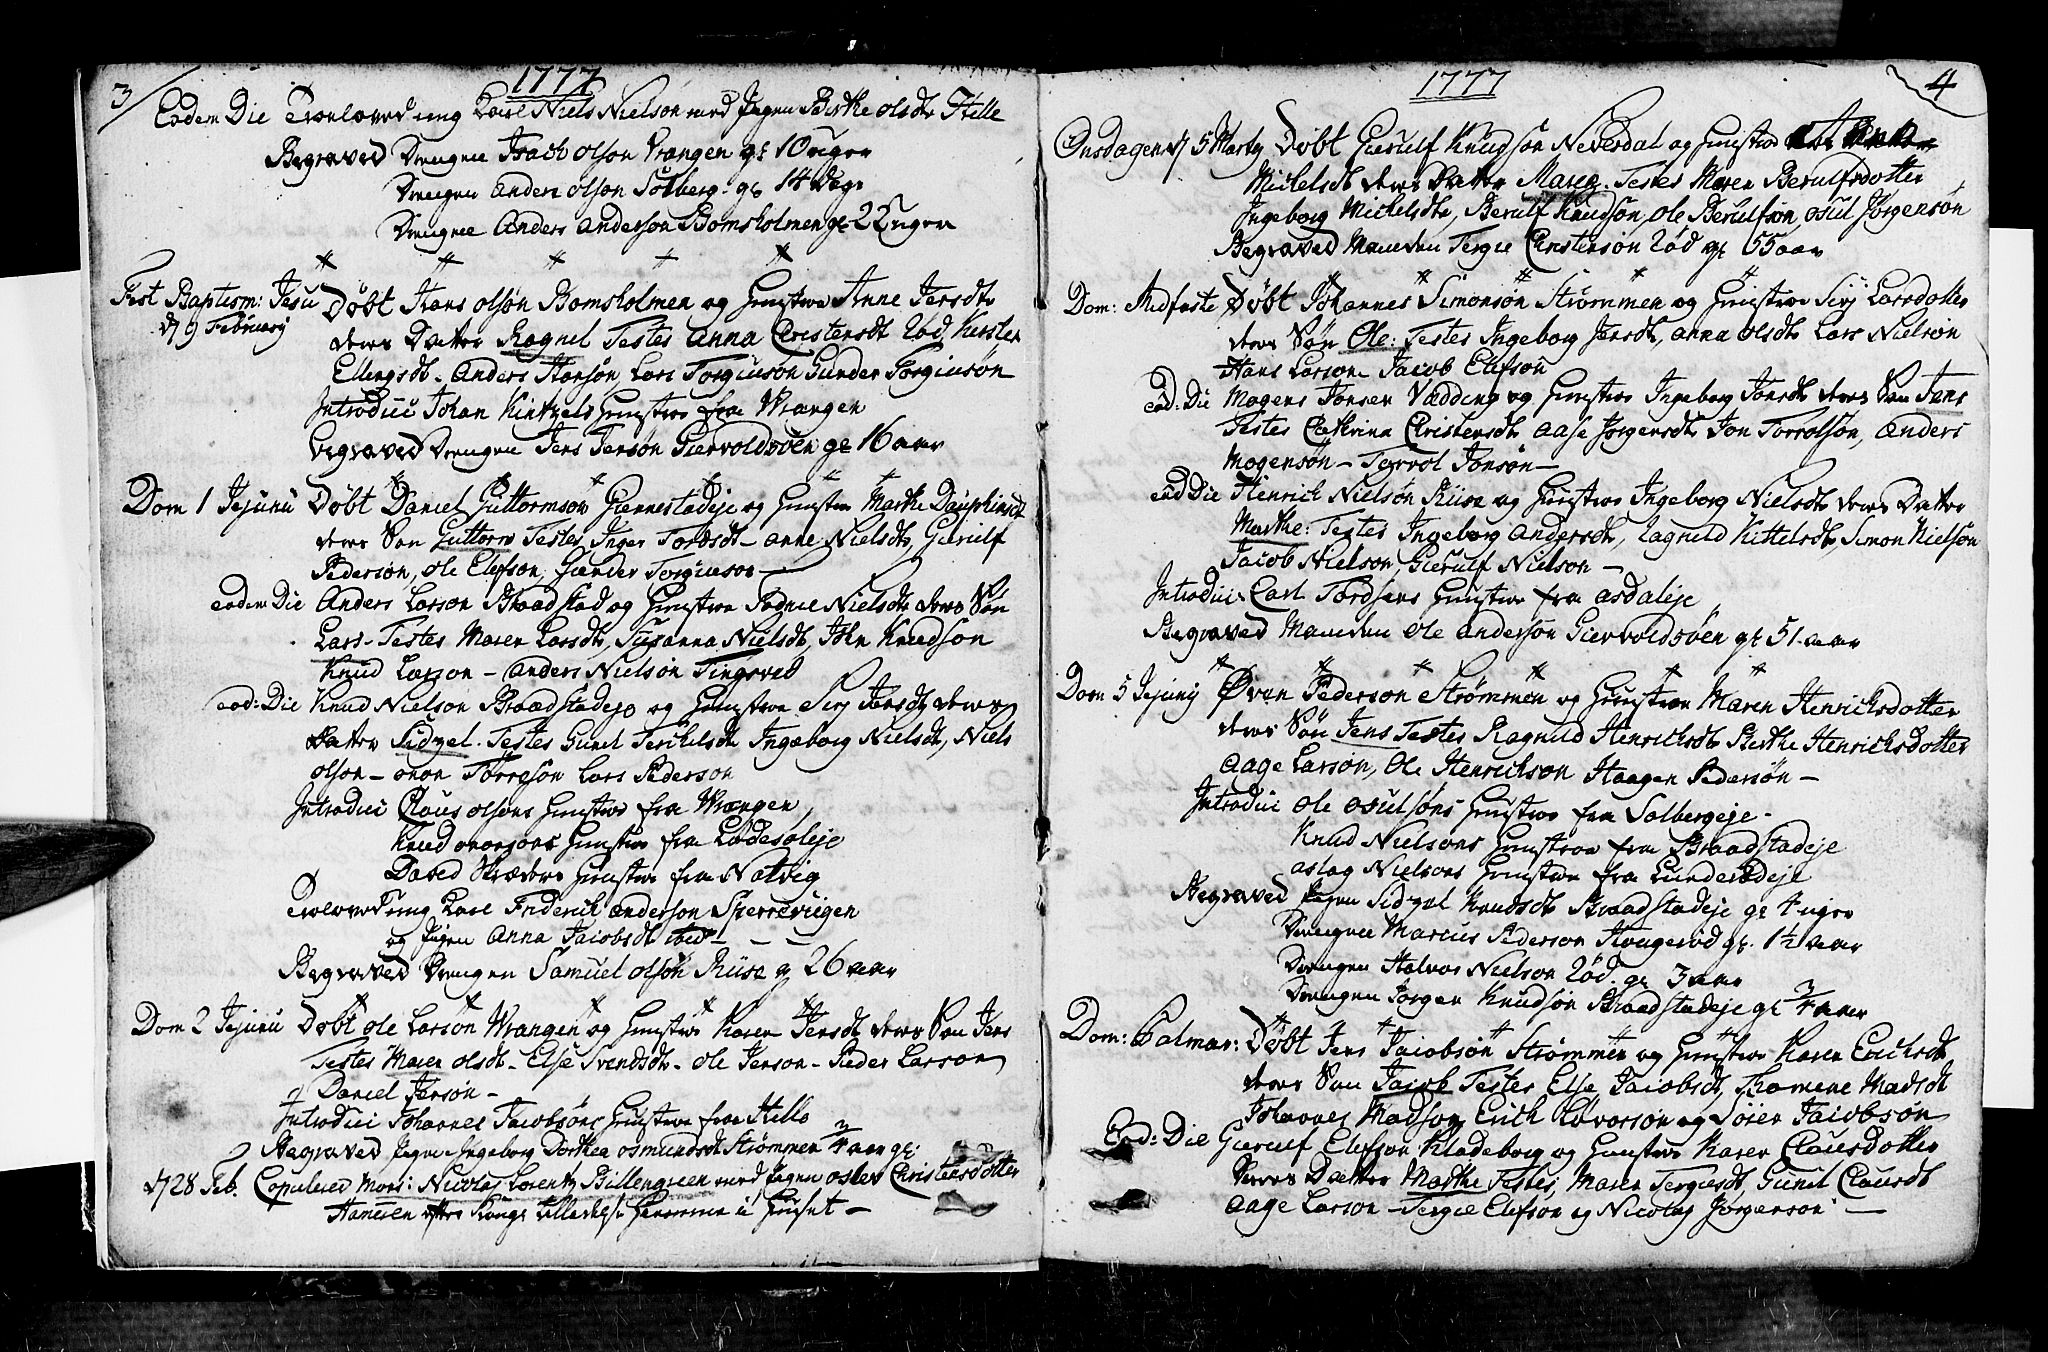 3
1777
Eodem Die Trolovet ung Karl Niels Nielsön med Pigen Birthe olsdtr Hille
Begraved Drengen Isach olson Vrangen gl 10 uger
Drengen Anders olson Solberg gl 14 Dage
Drengen Anders Anderson Bomsholmen gl 22 uger
Fest Baptism: Jesu Döbt Hans olsön Bomsholmen og Hustroe Anne Jensdtr
d 9 Februarij deres Datter Ragnel Testes Anna Christensdtr Röd, Kirsten
Ellingsdtr. Anders Hansön Lars Torgiusön Gunder Torgiusön
Introduci Johan Kintzels Hustroe fra Wrangen
begraved Drengen Jens Jensön Giervoldsöen gl 16 aar
Dom 1 Jejunu Döbt Daniel Guttormson Giennestadeje og Hustroe Marthe Dauphinsdtr
deres Son Guttorm Testes Inger Tordsdtr - Anne Nielsdtr Gierulf
Pederson, Ole Elefson, Gunder Torgiuson
Eodem Die Anders Larson Braadstad og Hustroe Nielsdtr deres Sön
Lars - Testes Maren Larsdtr, Susanna Nielsdtr, John Knudson
Knud Larson - Anders Nielson Tingsved
eod: Die Knud Nielson Braadstadeje og Hustroe Siri Jensdtr deres
Datter Sidzel. Testes Gunel Terchelsdtr Ingeborg Nielsdtr, Niels
olson - Torreson Lars Pederson
Introduci Claus olsons Hustroe fra Wrangen
Knud Hustroe fra
David Hustroe fra Natvig
Trolovet ung Karl Friderich Anderson Sperrevigen
og Pigen Anna Jacobsdtr ibid
Begraved Drengen Samuel olson Riise gl 26 aar
Dom 2 Jejunu Döbt ole Larson Wrangen og Hustroe Karen Jensdtr deres Son Jens
Testes Maren olsdtr - Else Svendsdtr - Ole Jenson - Peder Larson
Daniel Jenson -
Introduci Johannes Jacobsöns Hustroe fra Hille
Begraved Pigen Ingeborg Dorthea osmundsdtr Strömmen 3/4 aar gl:
d 28 Feb. Copuleret Mons: Nicolaj Lorentz Billengreen med Pigen Christensdotter
efter Kongl tilladelse Hiemme i Huset -
1777
4
Onsdagen d 5 Marty Döbt Gierulf Knudsön Neversdal og Hustroe
Michelsdtr deres Datter Maren. Testes Maren Berulfsdotter
Ingeborg Michelsdtr, Berulf Knudsön, Ole Berulfsön osul Jörgensön
Begraved Manden Tergie Christensön Röd gl 55 aar
Dom: Midfaste Döbt Johannes Simonsön Strömmen og Hustroe Siri Larsdotter
deres Sön Ole: Testes Ingeborg Jensdtr, Anna olsdtr Lars Nielsön
Hans Larson Jacob Elefson
eod: Die Mogens Jonsen Vadding og Hustroe Ingeborg Jonsdtr deres Son Jens
Testes Cathrina Christensdtr Aase Jörgensdtr Jon Torrolsön, Anders
Mogensön - Torrol Jonsön -
eod Die Henrich Nielsön Riise og Hustroe Ingeborg Nielsdtr deres Datter
Marthe: Testes Ingeborg Andersdtr, Ragnild Kittelsdtr, Simon Nielsön
Jacob Nielson, Gierulf Nielson -
Introduci Carl Tordsens Hustroe fra Asdaleje
Begraved Manden Ole Anderson Giervoldsöen gl 51 aar
Dom 5 Jejunij Öven Pederson Strömmen og Hustroe Maren Henrichsdotter
deres Sön Jens Testes Ragnild Henrichsdtr Birthe Henrichsdotter
Aage Larson, Ole Henrichson Haagen Pedersön -
Introduci ole osulsöns Hustroe fra Solbergeje -
Knud Nielsons Hustroe fra Braadstadeje
aslag Nielsons Hustroe fra Lunderödeje
Begraved Pigen Sidzel Knudsdtr Braadstadeje gl 4 uger
Drengen Marcus Pederson Haugeröd gl. 1½ aar
Drengen Halvor Nielson Röd gl 3 aar
Drengen Jörgen Knudsön Braadstadeje gl 3/4 aar
Dom: Palmar: Döbt Jens Jacobsön Strömmen og Hustroe Karen Erichsdtr
deres Son Jacob Testes Else Jacobsdtr, Thomene Madsdtr
Johannes Madson, Erich Halvorsön og Sören Jacobsön
Eod: Die Gierulf Elefson Kladeborg og Hustroe Karen Clausdotter
deres Datter Marthe Testes, Maren Tergiesdtr, Gunel Clausdtr
Aage Larson - Tergie Elefson og Nicolay Jörgenson -